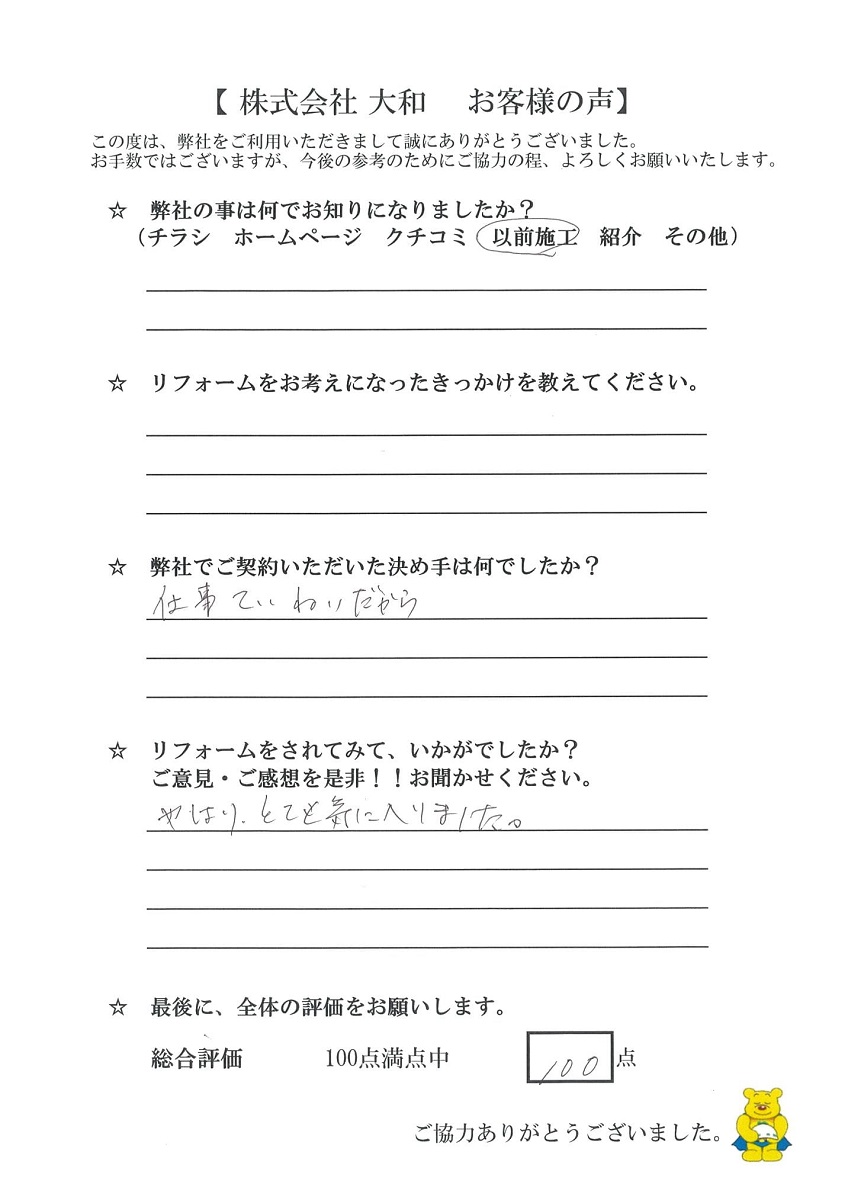 【 株式会社 大和　お客様の声】
この度は、弊社をご利用いただきまして誠にありがとうございました。
お手数ではございますが、今後の参考のためにご協力の程、よろしくお願いいたします。
☆　弊社の事は何でお知りになりましたか？
（チラシ　ホームページ　クチコミ　以前施工　紹介　その他）
☆　リフォームをお考えになったきっかけを教えてください。
☆　弊社でご契約いただいた決め手は何でしたか？
仕事ていねいだから
☆　リフォームをされてみて、いかがでしたか？
ご意見・ご感想を是非！！お聞かせください。
やはり、とても気に入りました。
☆　最後に、全体の評価をお願いします。
総合評価　100点満点中　100点
ご協力ありがとうございました。